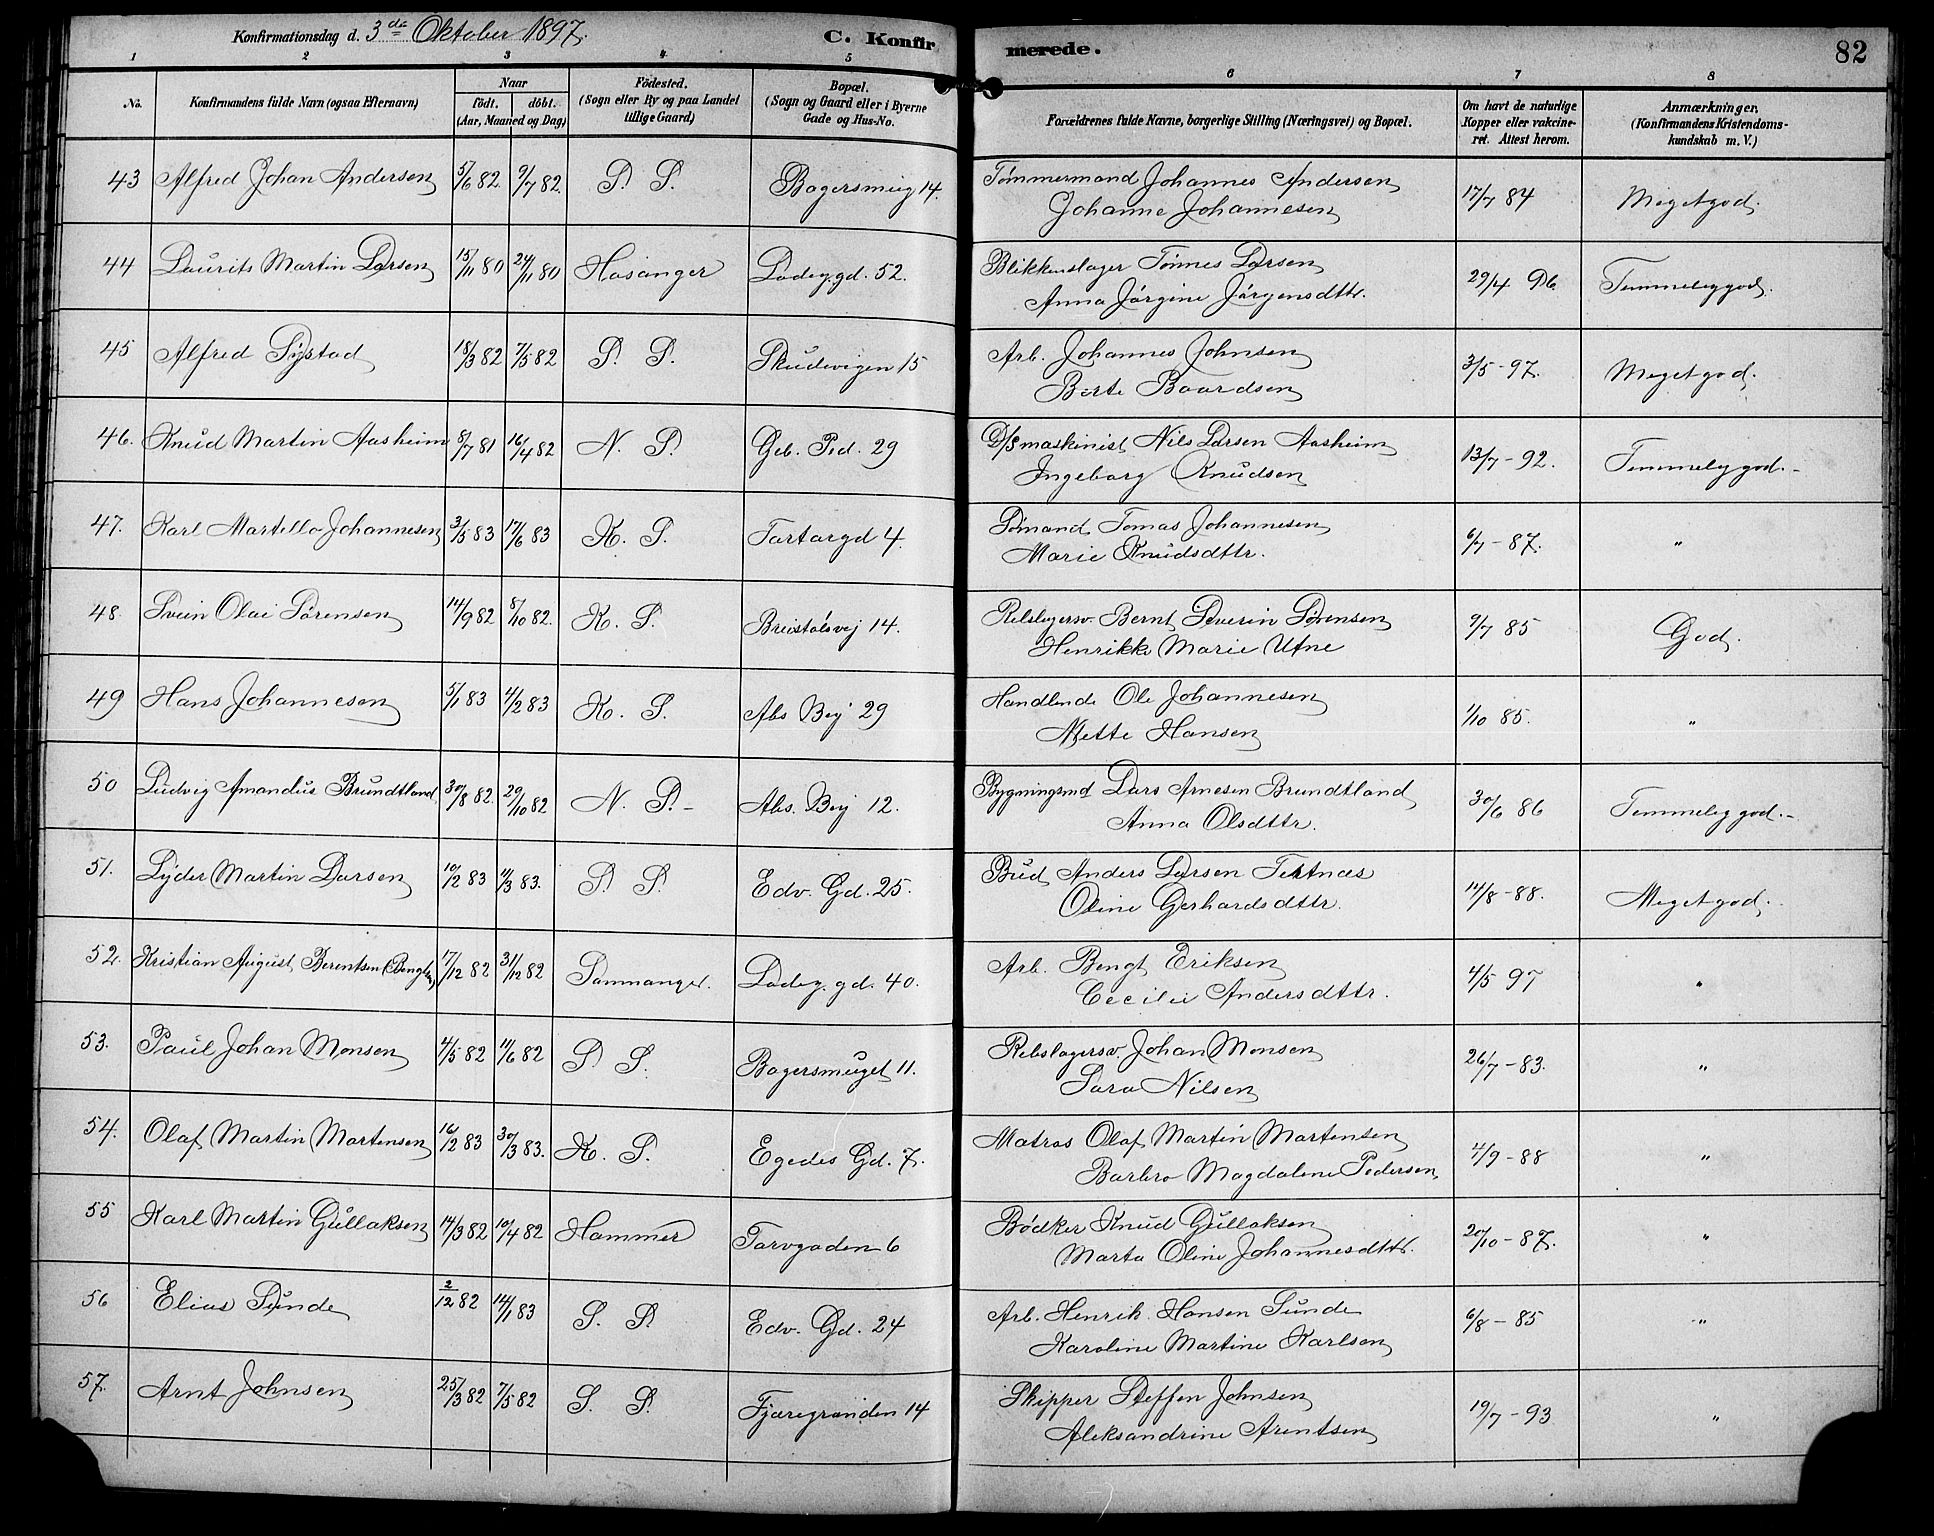 Konfirmationsdag d. 3de Oktober 1897.
C. Konfirmerede.
82
1 2 3 4 5 6 7 8
No.
Konfirmandens fulde Navn (ogsaa Efternavn)
Naar
födt. döbt.
(Aar, Maaned og Dag)
Födested.
(Sogn eller By og paa Landet
tillige Gaard.)
Bopæl.
(Sogn og Gaard eller i Byerne
Gade og Hus-No.
Forældrenes fulde Navne, borgerlige Stilling (Næringsvei) og Bopæl.
Om havt de naturlige
Kopper eller vakcine-
ret. Attest herom.
Anmærkninger.
(Konfirmandens Kristendoms-
kundskab m. V.)
43 Alfred Johan Andersen 5/6 82 9/7 82 S. S. Bagersmug 14. Tömmermand Johannes Andersen 17/7 84 Meget god.
Johanne Johannesen
44 Laurits Martin Larsen 15/11 80 24/11 80 Hosanger Ladeg.gd. 52. Blikkenslager Tönnes Larsen 29/4 Temmelig god.
Anna Jörgine Jörgensdttr.
45 Alfred Systad 18/3 82 7/5 82 S. S. Skudevigen 15 Arb. Johannes Johnsen 3/5 - 97. Meget god.
Berte Baardsen
46. Knud Martin Aasheim 8/7 81 16/4 82 N. S. Geb. Ped. 29 D/Smaskinist Nils Larsen Aasheim 13/7 - 92. Temmelig god.-
Ingeborg Knudsen
47. Karl Martello Johannesen 3/5 83 17/6 83 K. S. Tartargd 4. Sömand Tomas Johannesen 6/7 - 87. "
Marie Knudsdttr.
48. Svein Olai Sörensen 14/9 82 8/10 82. K. S. Breistölsvej 14. Rebslagersv. Bernt Severin Sörensen 9/7 85 God.
Henrikke Marie Utne
49 Hans Johannesen 5/1 83 4/2 83 K. S. Abs Vej 29 Handlende Ole Johannesen 1/10 85. "
Mette Hansen
50 Ludvig Amandus Brundtland 30/8 82. 29/10 82 N. S.- Abs. Vej 12. Bygningsmd Lars Arnesen Brundtland 30/6 86 Temmelig god.-
Anna Olsdttr.
51. Lyder Martin Larsen 10/2 83 11/3 83. S. S. Edv. Gd. 25. Bud Anders Larsen Tertnæs 14/8 - 88. Meget god.
Oline Gerhardsdttr.
52. Kristian August Berentsen (Bengtsen) 17/12 82 31/12 82 Sammanger. Ladeg.gd. 40. Arb. Bengt Eriksen 4/5 97 "
Cecilie Andersdttr.
53. Paul Johan Monsen 4/5 82 11/6 82 S. S. Bagersmuget 11. Rebslagersv. Johan Monsen 26/7 - 83. "
Sara Nilsen
54. Olaf Martin Martensen 16/2 83 30/3 83. K. S. Egedes Gd. 7. Matros Olaf Martin Martensen 4/9 - 88 "
Barbro Magdalene Pedersen
55 Karl Martin Gullaksen 14/3 82 10/4 82 Hammer Torvgaden 6 Bödker Knud Gullaksen 20/10 - 87. "
Marta Oline Johannesdttr.
56 Elias Sunde 2/12 82 14/1 83 S. S. Edv. Gd. 24 Arb. Henrik Hansen Sunde 6/8 - 85 "
Karoline Martine Karlsen
57. Arnt Johnsen 25/3 82 7/5 82 S. S. Fjæregranden 14 Skipper Steffen Johnsen 19/7 - 93 "
Aleksandrine Arentsen